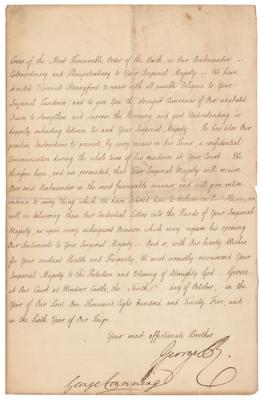 Cross of the Most Honourable Order of the Bath, as Our Ambassador
Extraordinary and Plenipotentiary to Your Imperial Majesty — We have
directed Viscount Strangford to repair with all possible Diligence to Your
Imperial Residence, and to give You the strongest Assurances of Our unabated
Desire to strengthen and improve the Harmony and good Understanding so
happily subsisting between Us and Your Imperial Majesty. He has also Our
positive Instructions to promote, by every means in his Power, a confidential
Communication during the whole time of his residence at Your Court. We
therefore hope, and are persuaded, that Your Imperial Majesty will receive
Our said Ambassador in the most favourable manner, and will give entire
credence to every thing which We have ordered him to declare in Our Name, as
well in delivering these Our Credential Letters into the Hands of Your Imperial
Majesty, as upon every subsequent Occasion which may require his opening
Our Sentiments to Your Imperial Majesty — And so, with Our hearty Wishes
for Your constant Health and Prosperity, We most earnestly recommend Your
Imperial Majesty to the Protection and Blessing of Almighty God — Given
at Our Court at Windsor Castle, the Tenth day of October, in the
Year of Our Lord One Thousand Eight Hundred and Twenty Five, and
in the Sixth Year of Our Reign.
Your most affectionate Brother
George R.
George Canning